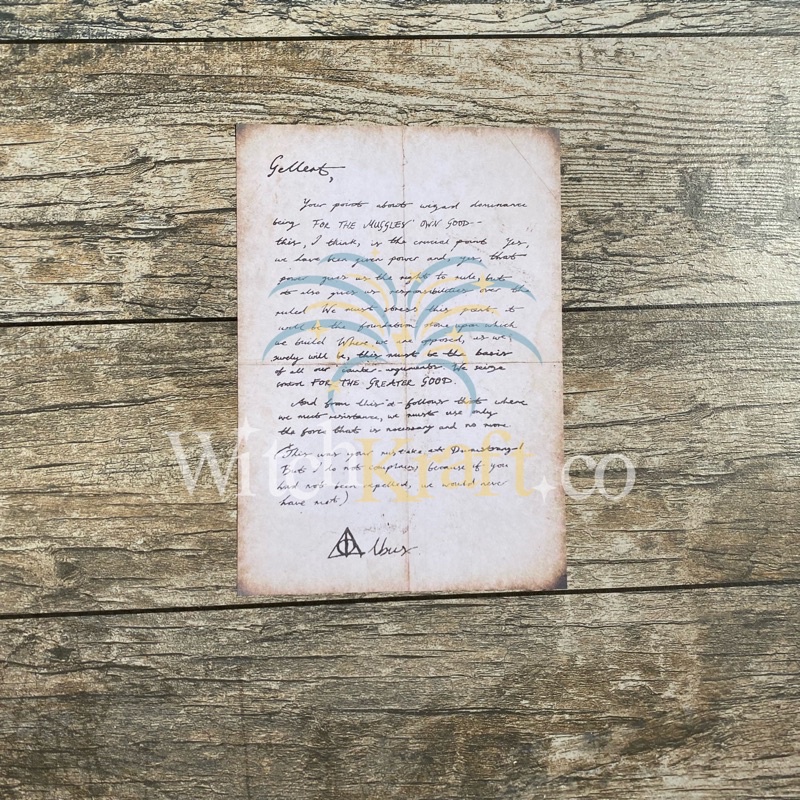 Gellert,
Your points about wizard dominance
being FOR THE MUGGLES' OWN GOOD--
this, I think, is the crucial point. Yes,
we have been given power and, yes, that
power gives us the right to rule, but
it also gives us responsibilities over the
ruled. We must stress this point, it
will be the foundation stone upon which
we build. Where we are opposed, as we
surely will be, this must be the basis
of all our counter-arguments. We seize
control FOR THE GREATER GOOD.
And from this it follows that where
we meet resistance, we must use only
the force that is necessary and no more.
(This was your mistake at Durmstrang!
But I do not complain, because if you
had not been expelled, we would never
have met.)
Albus
WitchKraft.co